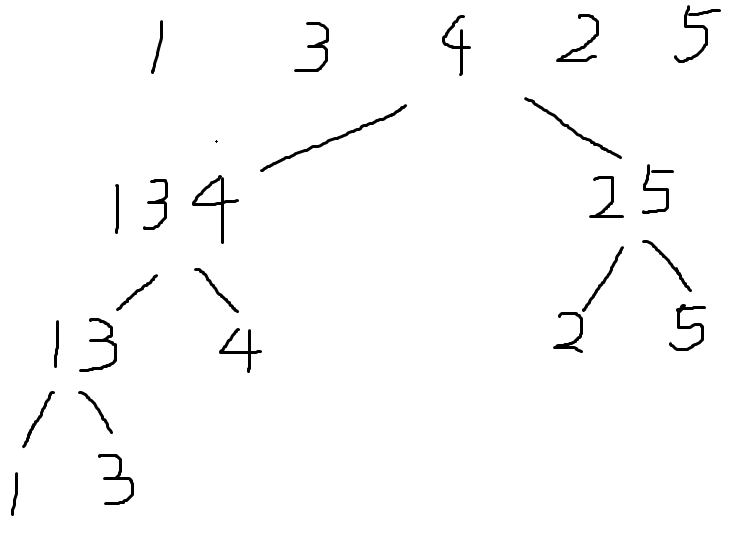 1 3 4 2 5
134 25
13 4 2 5
1 3